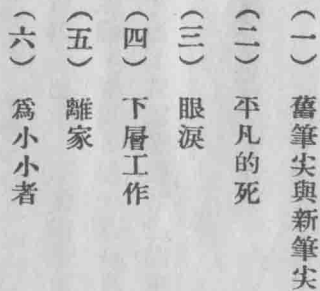 （一）　舊筆尖與新筆尖
（二）　平凡的死
（三）　眼淚
（四）　下層工作
（五）　離家
（六）　爲小小者